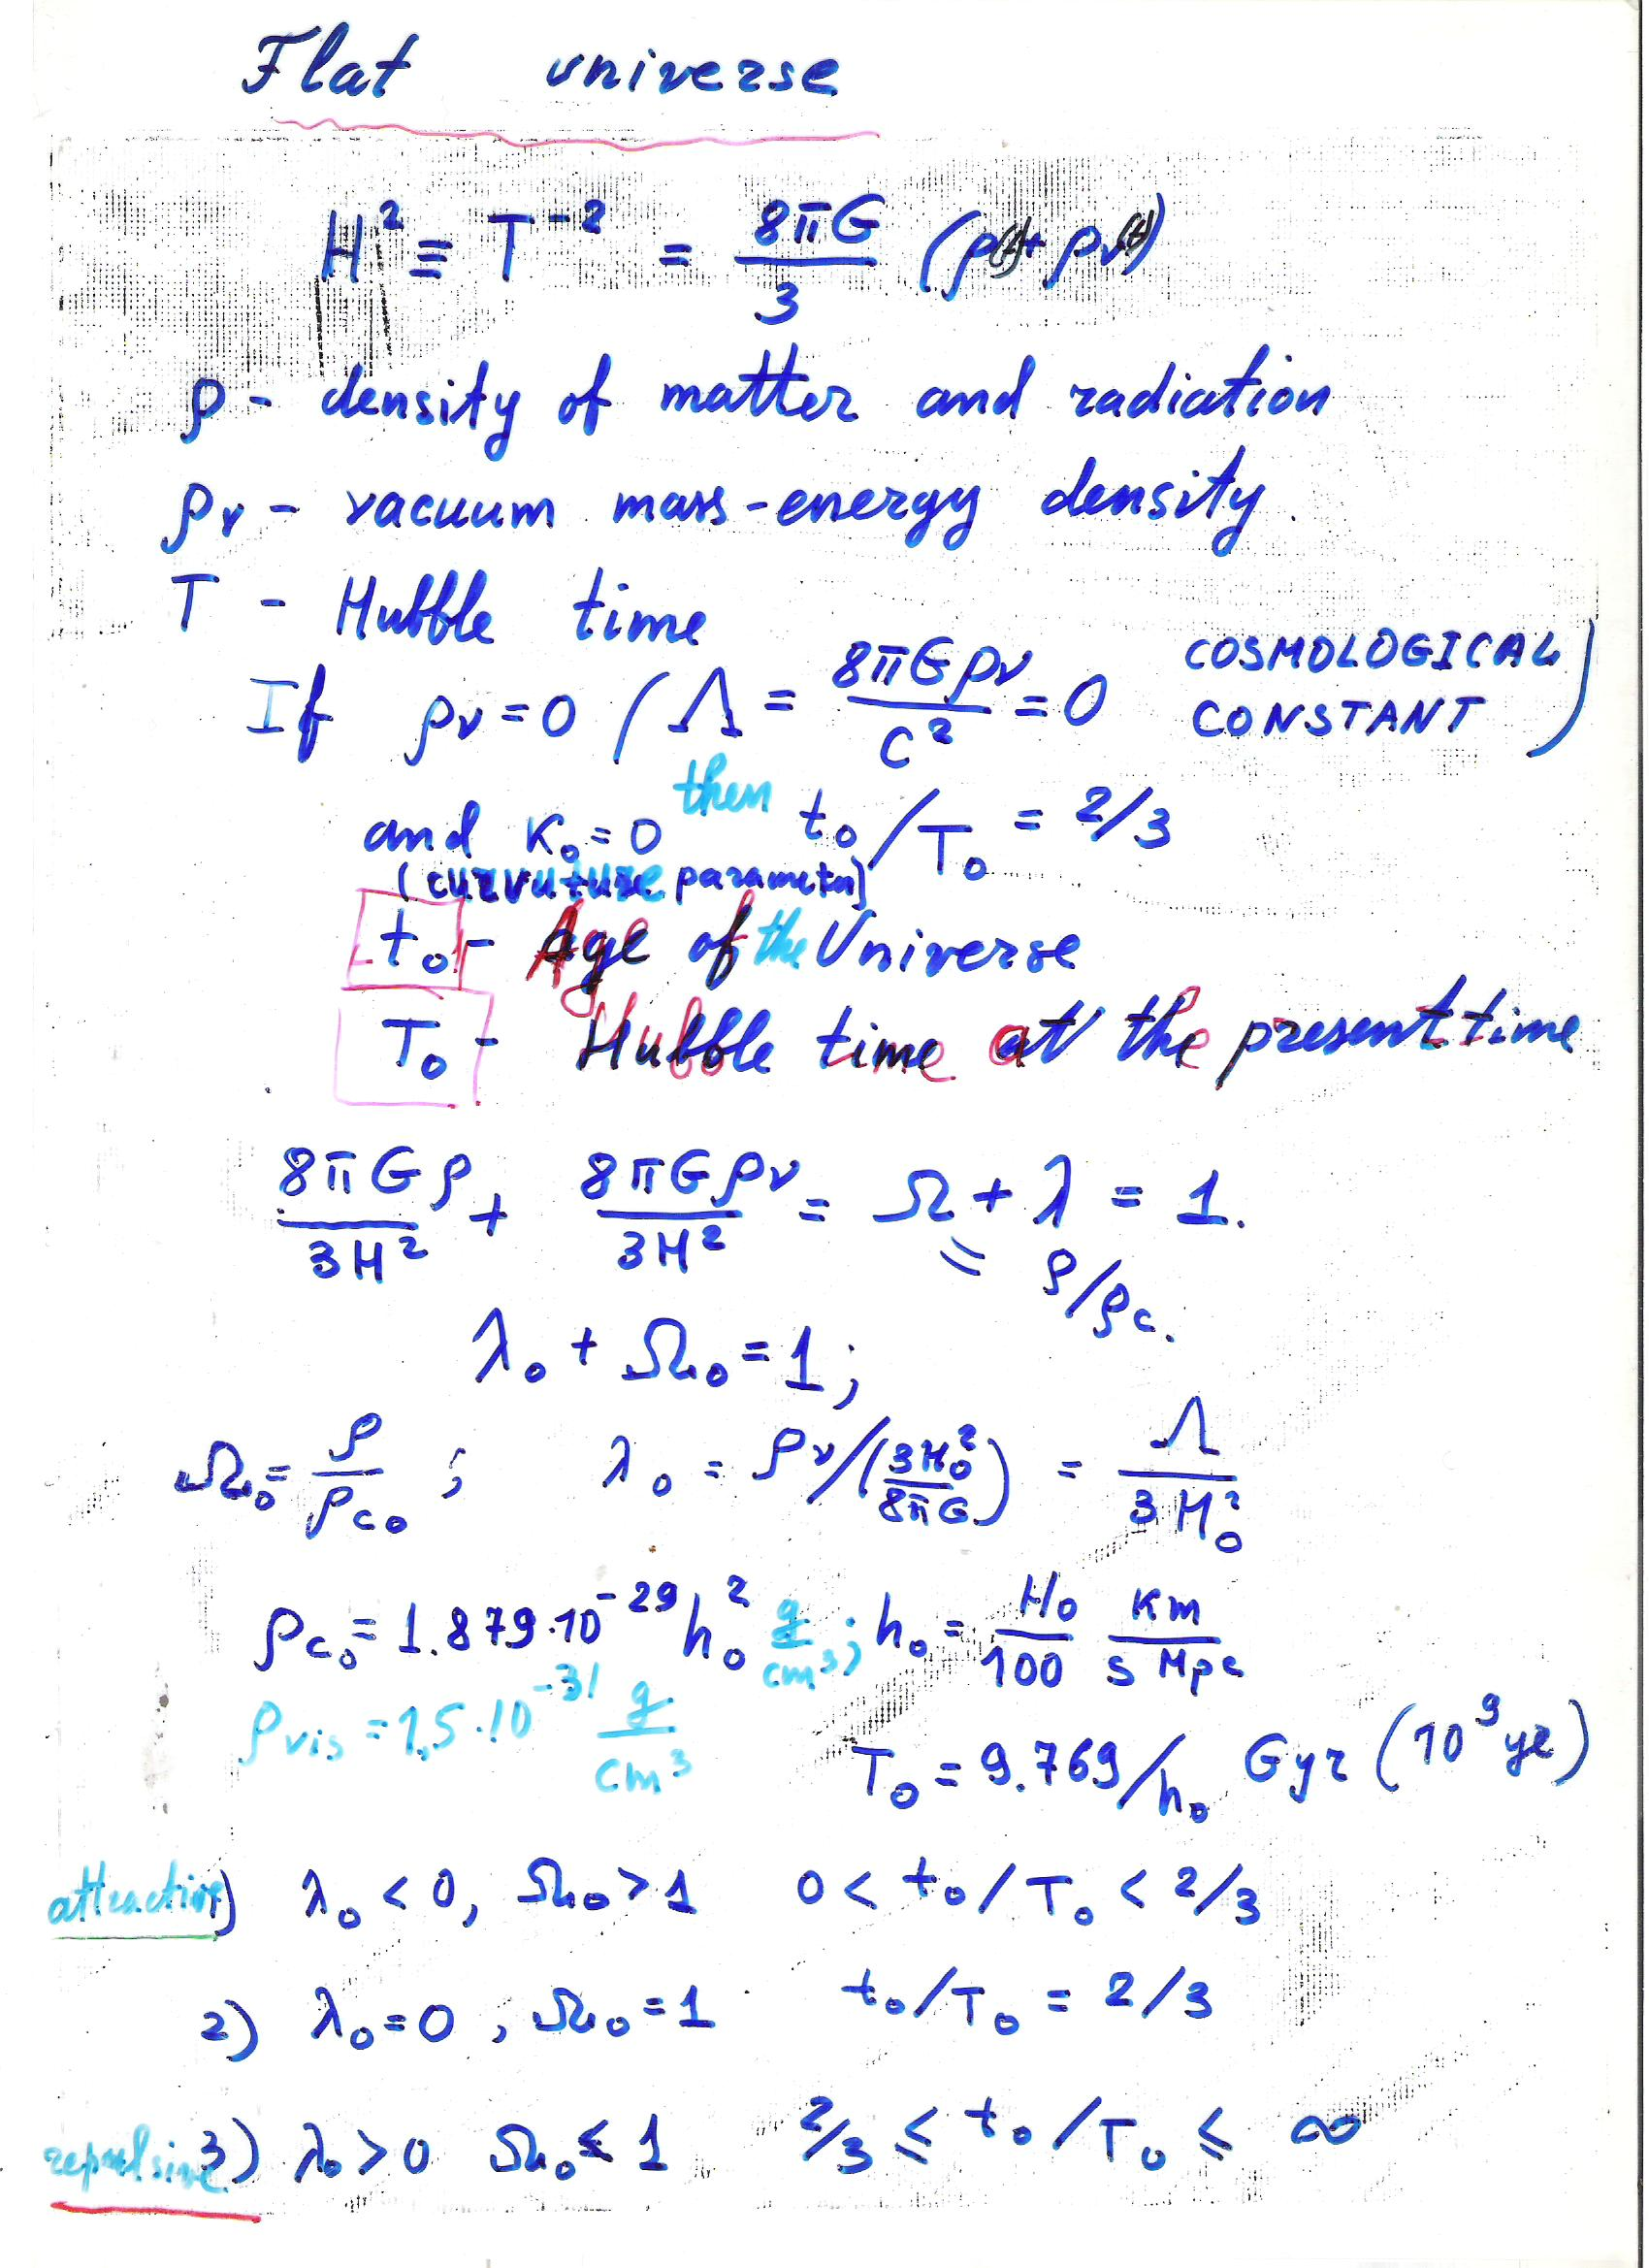 Flat universe
H² ≡ T⁻² = 8πG/3 (ρ(t) + ρv(t))
ρ - density of matter and radiation
ρv - vacuum mass-energy density.
T - Hubble time
If ρv = 0 (Λ = 8πGρv/c² = 0 COSMOLOGICAL CONSTANT)
and K₀ = 0 then t₀/T₀ = 2/3
(curvuture parameter)
t₀ - Age of the Universe
T₀ - Hubble time at the present time
8πGρ/3H² + 8πGρv/3H² = Ω + λ = 1.
= ρ/ρc.
λ₀ + Ω₀ = 1;
Ω₀ = ρ/ρc₀ ; λ₀ = ρv/(3H₀²/8πG) = Λ/3H₀²
ρc₀ = 1.879·10⁻²⁹ h₀² g/cm³; h₀ = H₀/100 Km/s Mpc
ρvis = 1,5·10⁻³¹ g/cm³
T₀ = 9.769/h₀ Gyr (10⁹ yr)
attractive) λ₀ < 0, Ω₀ > 1 0 < t₀/T₀ < 2/3
2) λ₀ = 0, Ω₀ = 1 t₀/T₀ = 2/3
repulsive 3) λ₀ > 0 Ω₀ ≤ 1 2/3 ≤ t₀/T₀ ≤ ∞